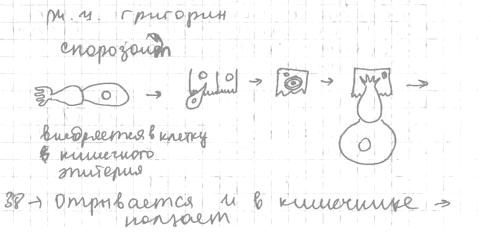 ж. ц. грегарин
спорозоит
внедряется в клетку
в кишечного
эпителия
38 → Отрывается и в кишечнике →
ползает